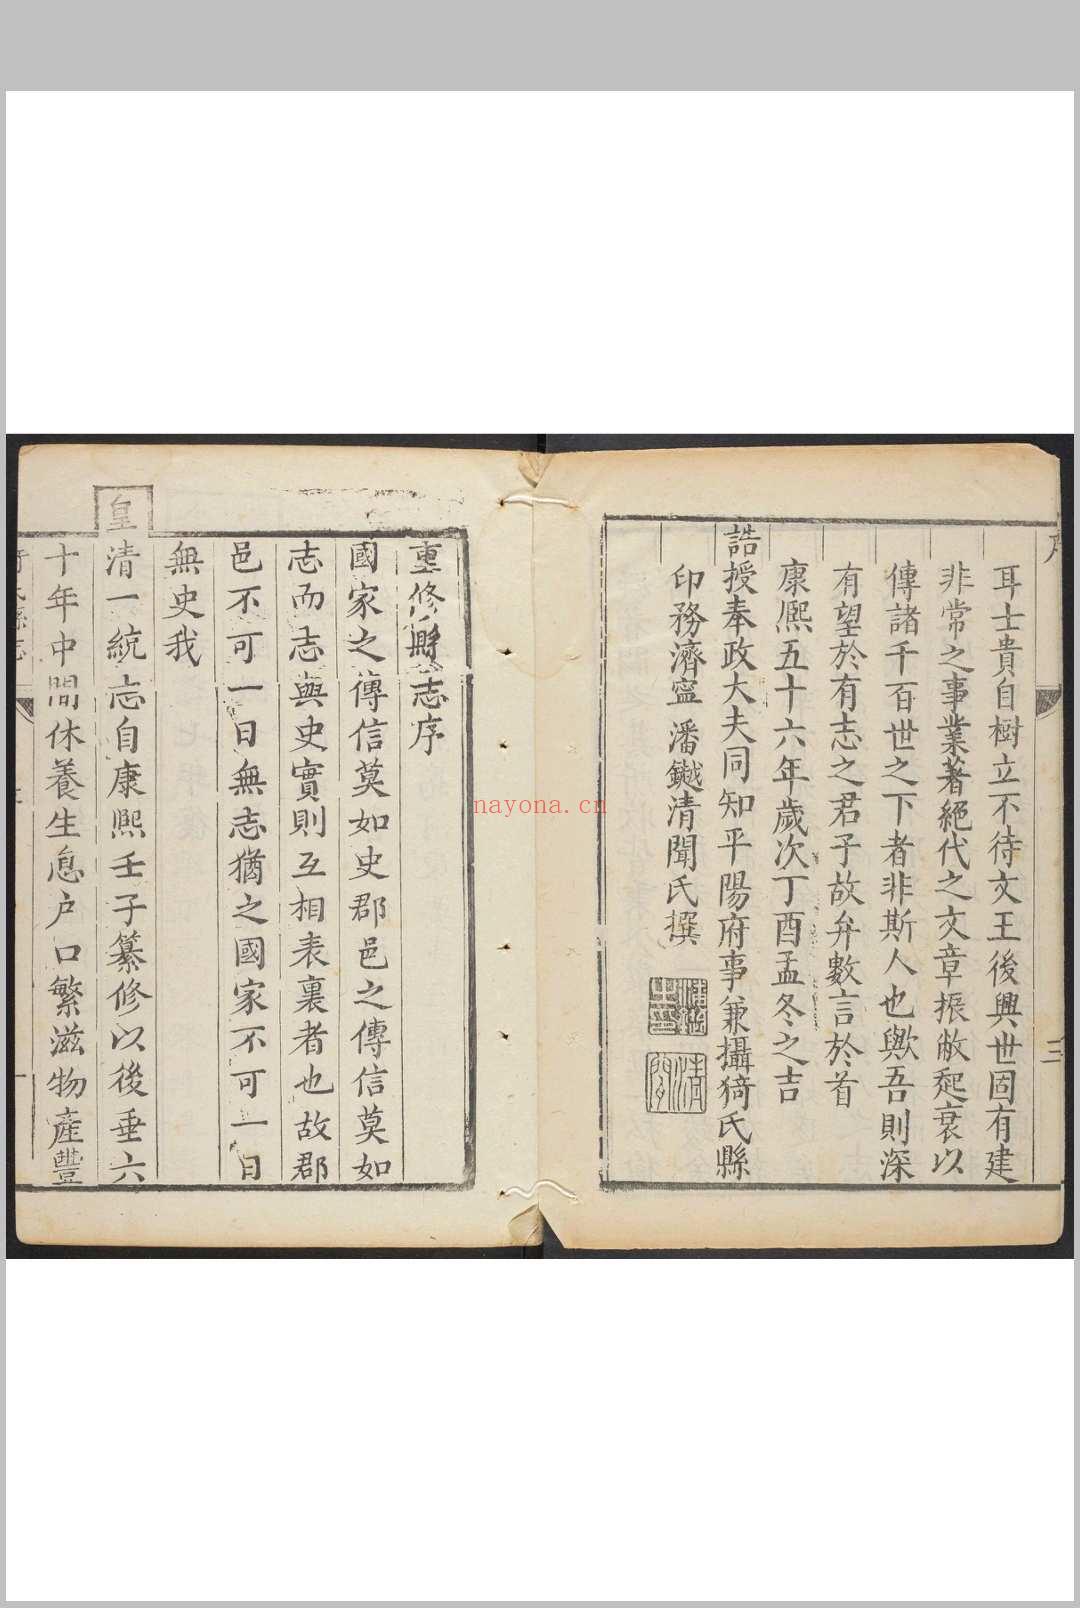 序
三
耳士貴自樹立不待文王後興世固有建
非常之事業著絕代之文章振敝起衰以
傳諸千百世之下者非斯人也歟吾則深
有望於有志之君子故弁數言於首
康熙五十六年歲次丁酉孟冬之吉
誥授奉政大夫同知平陽府事兼攝猗氏縣
印務濟寧潘鉞清聞氏撰
重修縣志序
國家之傳信莫如史郡邑之傳信莫如
志而志與史實則互相表裏者也故郡
邑不可一日無志猶之國家不可一日
無史我
皇清一統志自康熙壬子纂修以後垂六
十年中間休養生息户口繁滋物產豐
nayona.cn